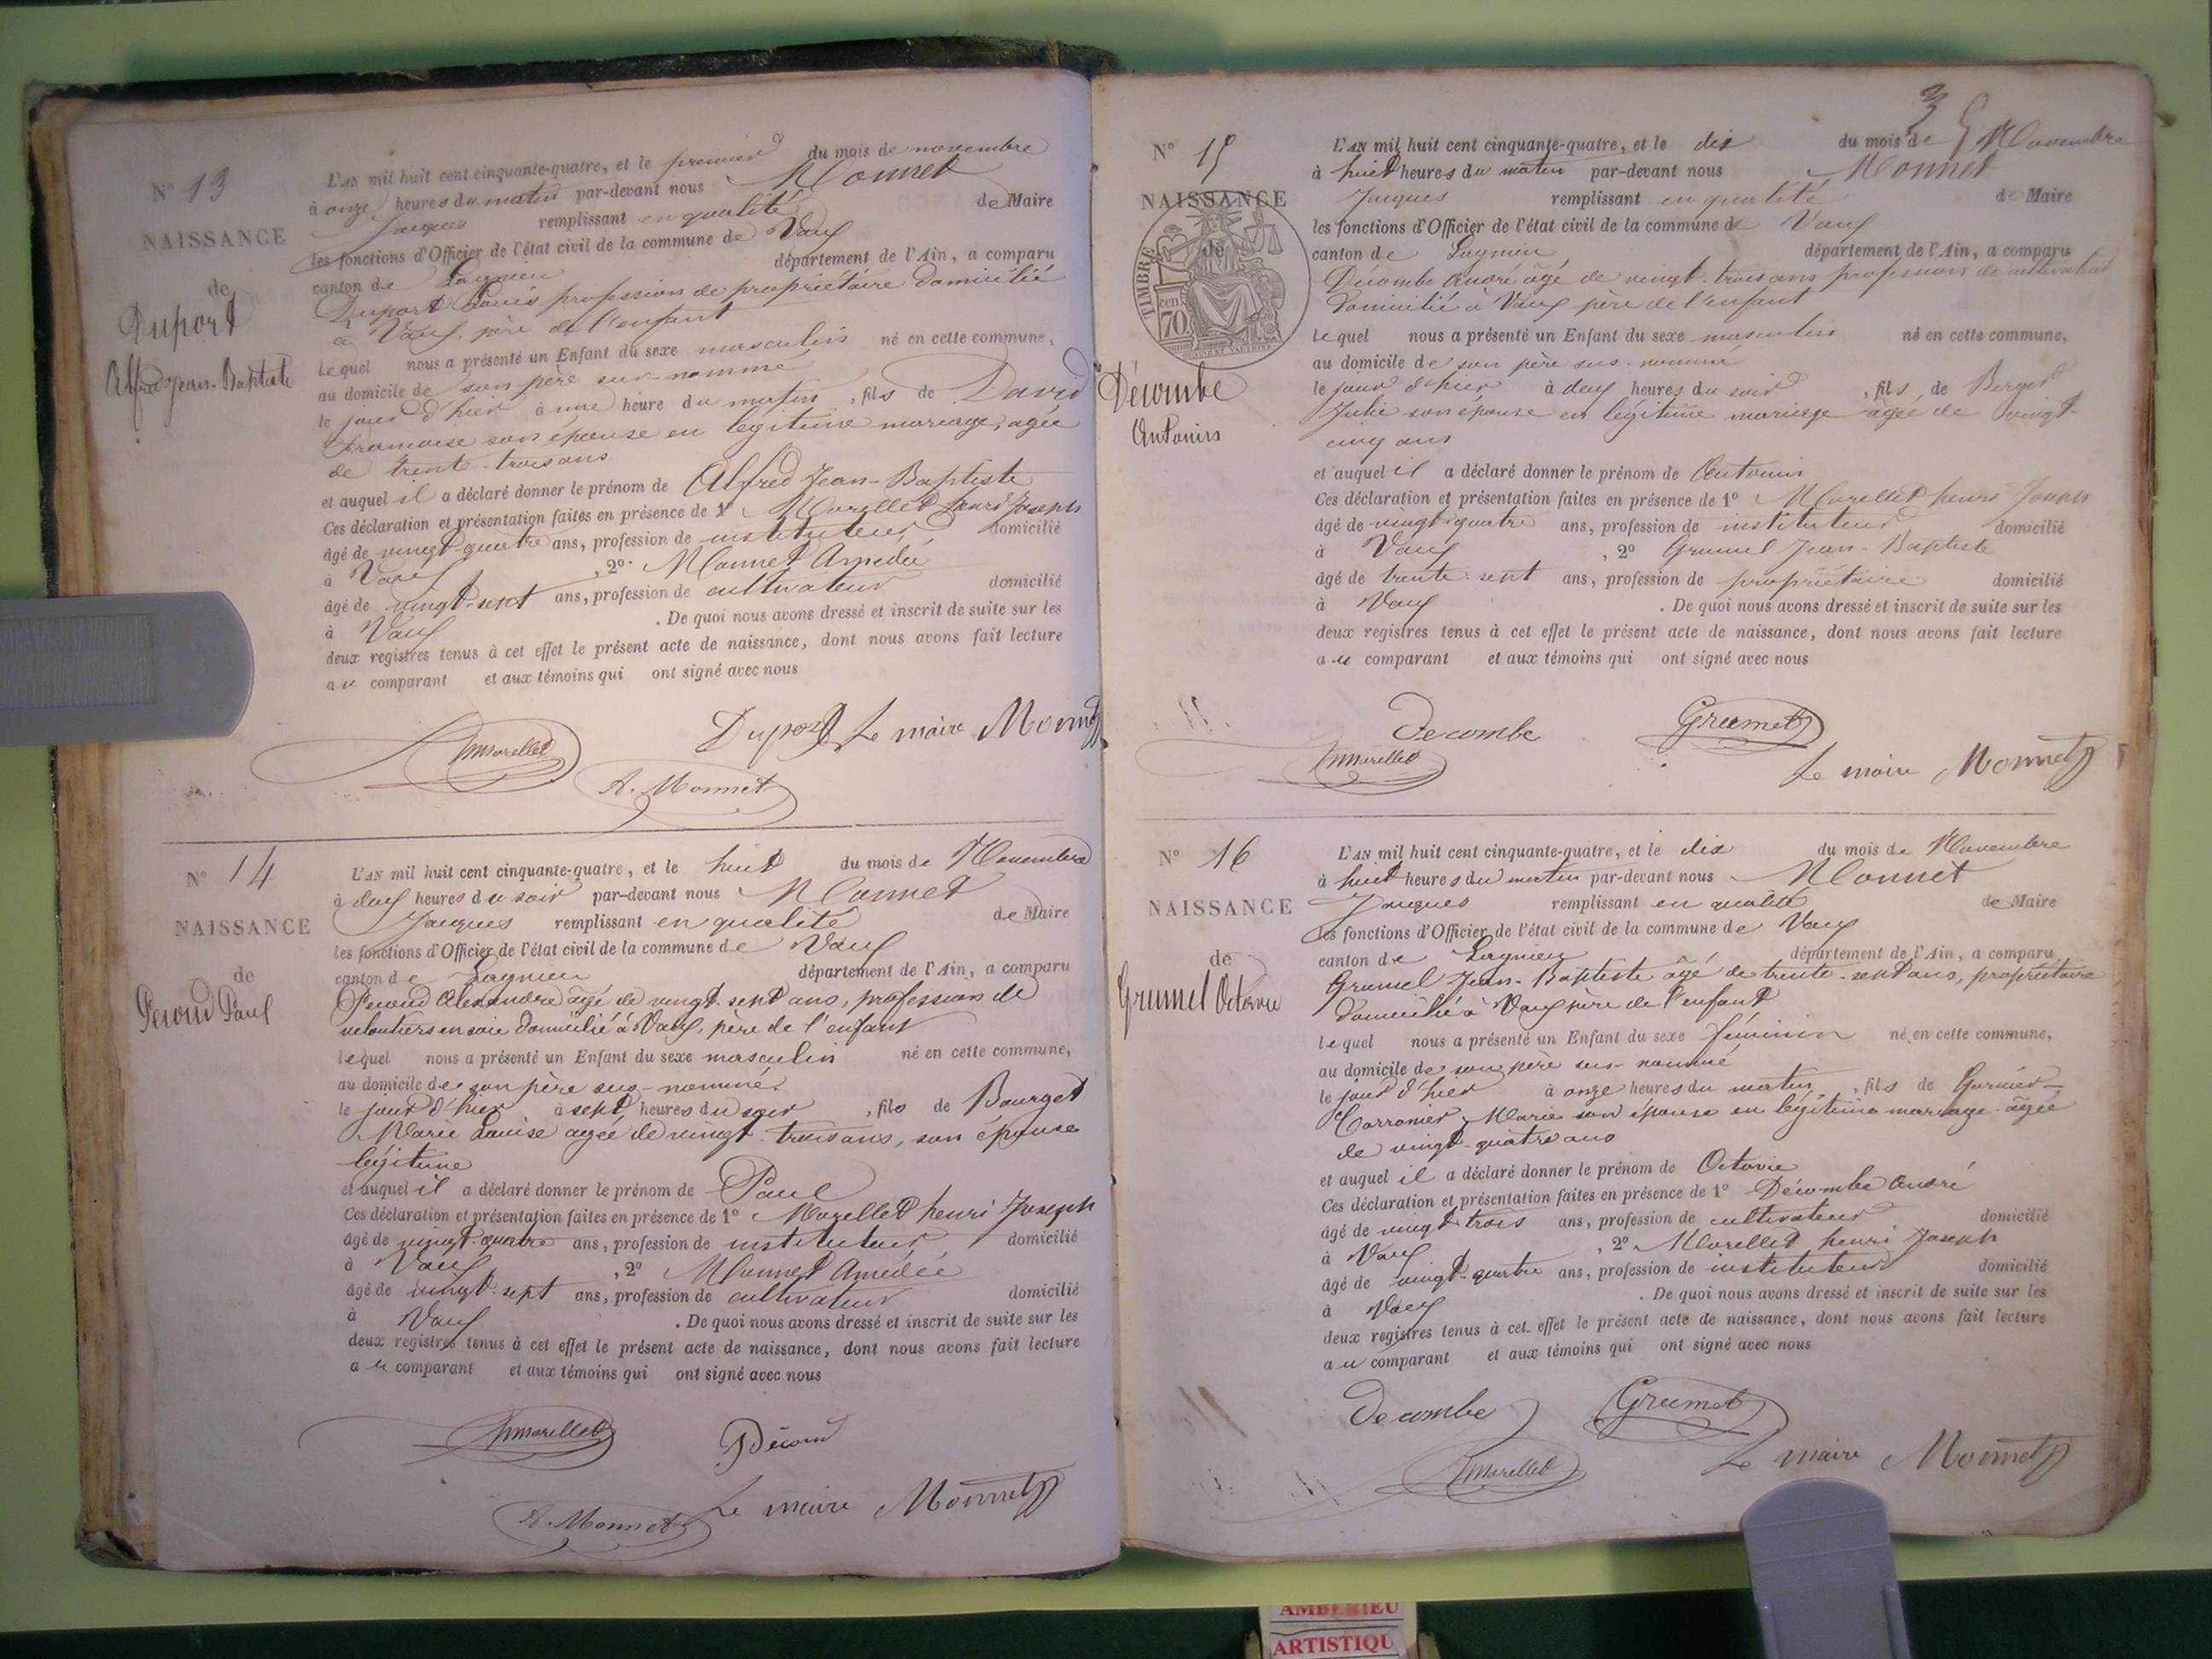 N° 13
NAISSANCE
de
Duport
Alfred Jean-Baptiste
L'AN mil huit cent cinquante-quatre, et le premier du mois de novembre
à onze heures du matin par-devant nous Monnet
Jacques remplissant en qualité de Maire
les fonctions d'Officier de l'état civil de la commune de Vaux
canton de Lagnieu département de l'Ain, a comparu
Duport Louis profession de propriétaire domicilié
à Vaux, père de l'enfant
lequel nous a présenté un Enfant du sexe masculin né en cette commune,
au domicile de son père sus-nommé
le jour d'hier à une heure du matin, fils de David
francoise son épouse en légitime mariage, agée
de trente-trois ans
et auquel il a déclaré donner le prénom de Alfred Jean-Baptiste
Ces déclaration et présentation faites en présence de 1° Morellet henri Joseph
âgé de vingt-quatre ans, profession de instituteur domicilié
à Vaux, 2° Monnet Amédée
âgé de vingt-sept ans, profession de cultivateur domicilié
à Vaux. De quoi nous avons dressé et inscrit de suite sur les
deux registres tenus à cet effet le présent acte de naissance, dont nous avons fait lecture
au comparant et aux témoins qui ont signé avec nous
Duport Le maire Monnet
Morellet
A. Monnet
N° 14
NAISSANCE
de
Pecoud Paul
L'AN mil huit cent cinquante-quatre, et le huit du mois de Novembre
à deux heures du soir par-devant nous Monnet
Jacques remplissant en qualité de Maire
les fonctions d'Officier de l'état civil de la commune de Vaux
canton de Lagnieu département de l'Ain, a comparu
Pecoud Alexandre âgé de vingt-sept ans, profession de
veloutier en soie domicilié à Vaux, père de l'enfant
lequel nous a présenté un Enfant du sexe masculin né en cette commune,
au domicile de son père sus-nommé
le jour d'hier à sept heures du soir, fils de Bourget
Marie Louise agée de vingt-trois ans, son épouse
légitime
et auquel il a déclaré donner le prénom de Paul
Ces déclaration et présentation faites en présence de 1° Morellet henri Joseph
âgé de vingt-quatre ans, profession de instituteur domicilié
à Vaux, 2° Monnet Amédée
âgé de vingt-sept ans, profession de cultivateur domicilié
à Vaux. De quoi nous avons dressé et inscrit de suite sur les
deux registres tenus à cet effet le présent acte de naissance, dont nous avons fait lecture
au comparant et aux témoins qui ont signé avec nous
Morellet
Pécoud
A. Monnet Le maire Monnet
3
N° 15
NAISSANCE
de
TIMBRE
cen
70.
Décombe
Antonin
L'AN mil huit cent cinquante-quatre, et le dix du mois de Novembre
à huit heures du matin par-devant nous Monnet
Jacques remplissant en qualité de Maire
les fonctions d'Officier de l'état civil de la commune de Vaux
canton de Lagnieu département de l'Ain, a comparu
Décombe André âgé de vingt-trois ans profession de cultivateur
domicilié à Vaux père de l'enfant
lequel nous a présenté un Enfant du sexe masculin né en cette commune,
au domicile de son père sus-nommé
le jour d'hier à deux heures du soir, fils de Berger
Julie son épouse en légitime mariage âgée de vingt-
cinq ans
et auquel il a déclaré donner le prénom de Antonin
Ces déclaration et présentation faites en présence de 1° Morellet henri Joseph
âgé de vingt-quatre ans, profession de instituteur domicilié
à Vaux, 2° Grumel Jean-Baptiste
âgé de trente-sept ans, profession de propriétaire domicilié
à Vaux. De quoi nous avons dressé et inscrit de suite sur les
deux registres tenus à cet effet le présent acte de naissance, dont nous avons fait lecture
au comparant et aux témoins qui ont signé avec nous
Decombe Grumel
Morellet
Le maire Monnet
N° 16
NAISSANCE
de
Grumel Octavie
L'AN mil huit cent cinquante-quatre, et le dix du mois de Novembre
à huit heures du matin par-devant nous Monnet
Jacques remplissant en qualité de Maire
les fonctions d'Officier de l'état civil de la commune de Vaux
canton de Lagnieu département de l'Ain, a comparu
Grumel Jean-Baptiste âgé de trente-sept ans, propriétaire
domicilié à Vaux père de l'enfant
lequel nous a présenté un Enfant du sexe féminin né en cette commune,
au domicile de son père sus-nommé
le jour d'hier à onze heures du matin, fils de Garnier-
Marie son épouse en légitime mariage âgée
de vingt-quatre ans
et auquel il a déclaré donner le prénom de Octavie
Ces déclaration et présentation faites en présence de 1° Décombe André
âgé de vingt-trois ans, profession de cultivateur domicilié
à Vaux, 2° Morellet henri Joseph
âgé de vingt-quatre ans, profession de instituteur domicilié
à Vaux. De quoi nous avons dressé et inscrit de suite sur les
deux registres tenus à cet effet le présent acte de naissance, dont nous avons fait lecture
au comparant et aux témoins qui ont signé avec nous
Decombe Grumel
Morellet
Le maire Monnet
AMBERIEU
ARTISTIQU